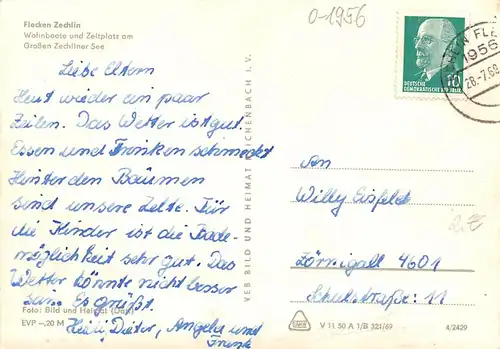 Flecken Zechlin
Wohnboote und Zeltplatz am
Großen Zechliner See
0-1956
Liebe Eltern
Heut wieder ein paar
Zeilen. Das Wetter ist gut.
Essen und Trinken schmeckt
Hinter den Bäumen
sind unsere Zelte. Für
die Kinder ist die Bade-
möglichkeit sehr gut. Das
Wetter könnte nicht besser
sein. Es grüßt.
Foto: Bild und Heimat
EVP -,20 M
Dieter, Angela und
Frank
VEB BILD UND HEIMAT REICHENBACH I. V.
10
DEUTSCHE
DEMOKRATISCHE REPUBLIK
1956
28.-7.69
An
Willy Eisfeldt
Zörnigall 4601
Schulstraße: 11
V 11 50 A 1/B 321/69
4/2429